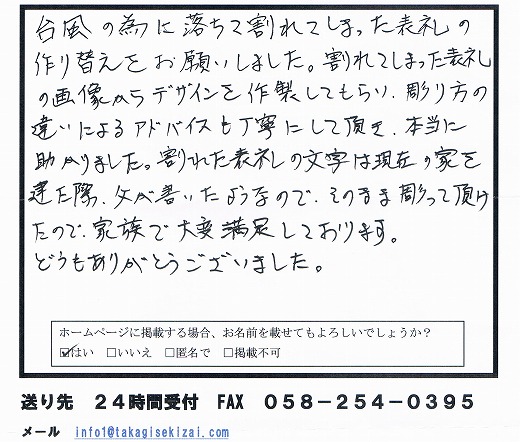 台風の為に落ちて割れてしまった表札の
作り替えをお願いしました。割れてしまった表札
の画像からデザインを作製してもらい、彫り方の
違いによるアドバイスも丁寧にして頂き、本当に
助かりました。割れた表札の文字は現在の家を
建た際、父が書いたようなので、そのまま彫って頂け
たので、家族で大変満足しております。
どうもありがとうございました。
ホームページに掲載する場合、お名前を載せてもよろしいでしょうか？
☑はい　□いいえ　□匿名で　□掲載不可
送り先　２４時間受付　FAX　０５８－２５４－０３９５
メール　info1@takagisekizai.com